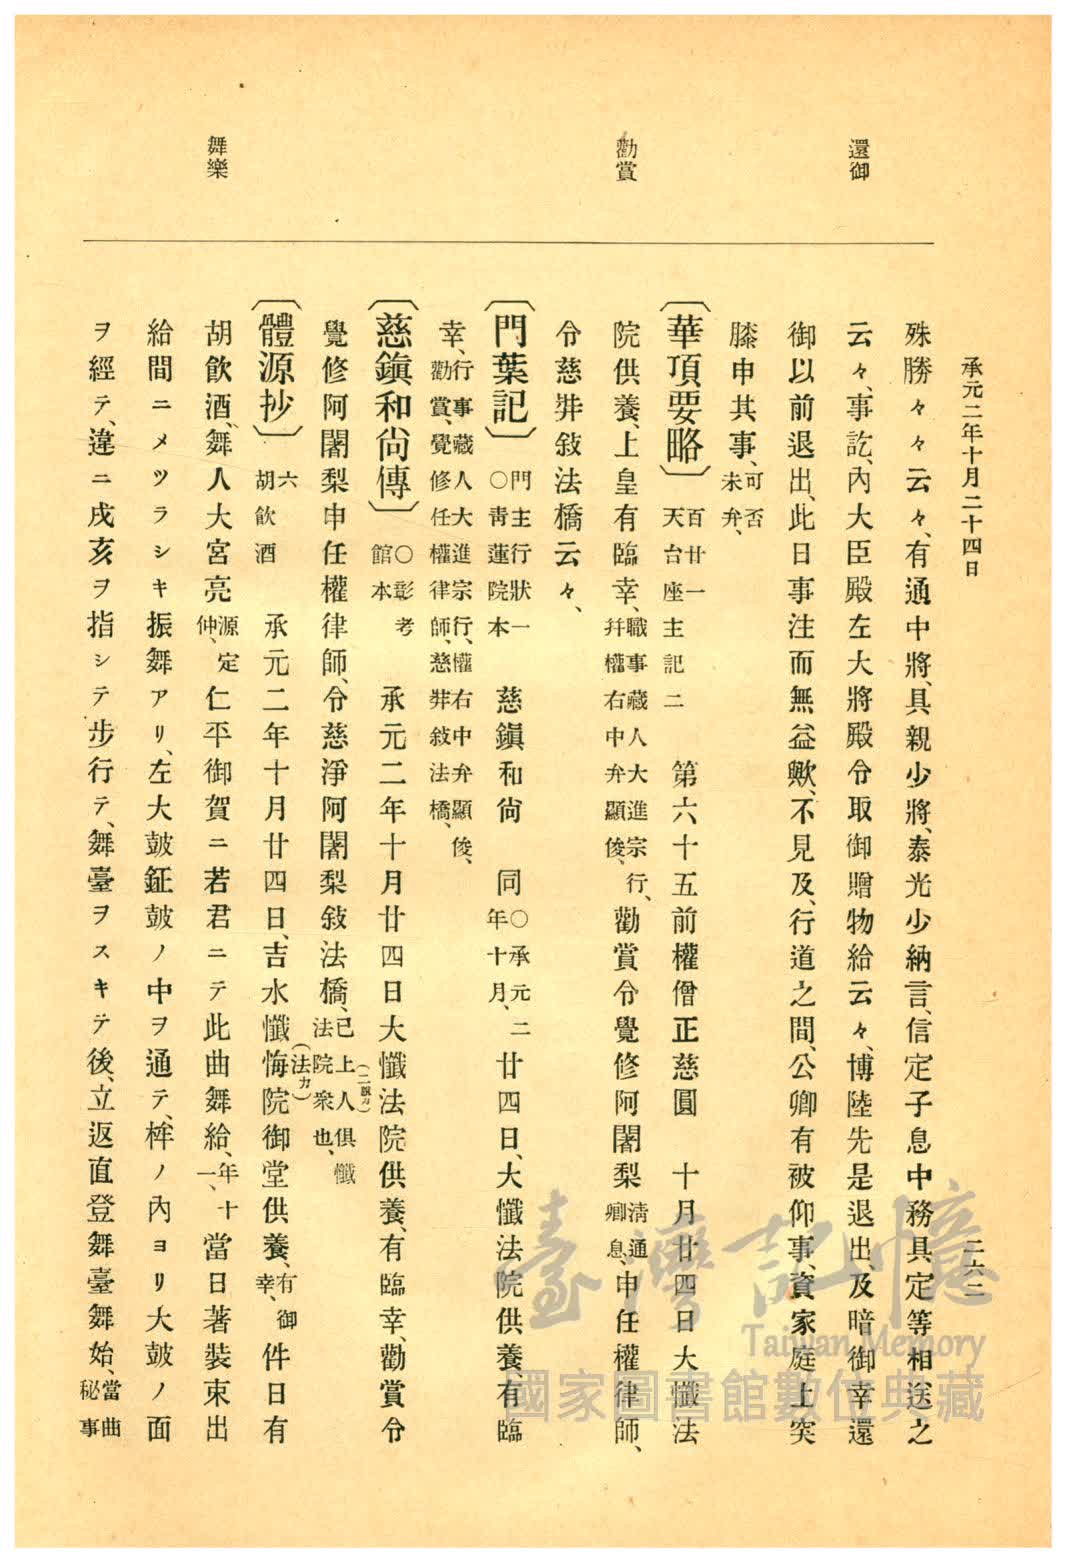 承元二年十月二十四日
二六二
還御
勸賞
舞樂
殊勝々々云々、有通中將、具親少將、泰光少納言、信定子息中務具定等相送之
云々、事訖、內大臣殿左大將殿令取御贈物給云々、博陸先是退出及暗御幸還
御以前退出、此日事注而無益歟、不見及、行道之間、公卿有被仰事、資家庭上突
膝申其事、可否未弁、
〔華項要略〕百廿一天台座主記二 第六十五前權僧正慈圓 十月廿四日大懺法
院供養、上皇有臨幸、職事藏人大進宗行、幷權右中弁顯俊、勸賞令覺修阿闍梨淸通卿息、申任權律師、
令慈弉敍法橋云々、
〔門葉記〕門主行狀一○靑蓮院本 慈鎭和尙 同○承元二年十月、廿四日、大懺法院供養、有臨
幸、行事藏人大進宗行、權右中弁顯俊、勸賞、覺修任權律師、慈弉敍法橋、
〔慈鎭和尙傳〕○彰考館本 承元二年十月廿四日大懺法院供養、有臨幸、勸賞令
覺修阿闍梨申任權律師、令慈淨阿闍梨敍法橋、已上人俱懺法院衆也、
〔體源抄〕六胡飮酒 承元二年十月廿四日、吉水懺悔(法カ)院御堂供養、有御幸、件日有
胡飮酒、舞人大宮亮源定仲、仁平御賀ニ若君ニテ此曲舞給、年十一、當日著裝束出
給間ニメツラシキ振舞アリ、左大鼓鉦鼓ノ中ヲ通テ、桙ノ內ヨリ大鼓ノ面
ヲ經テ、違ニ戌亥ヲ指シテ步行テ、舞臺ヲスキテ後、立返直登舞臺舞始、當曲秘事
臺灣記憶
Taiwan Memory
國家圖書館數位典藏